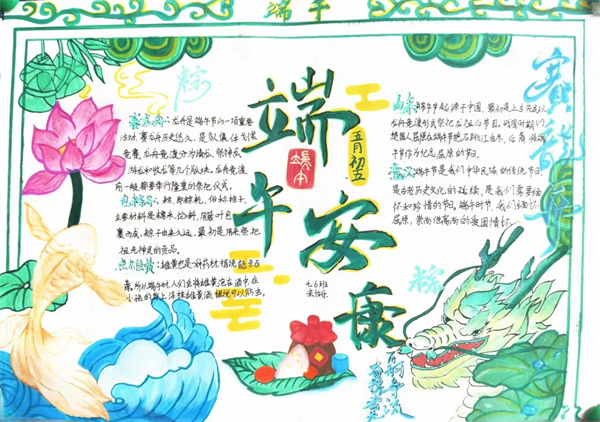 端午
粽
赛龙舟：龙舟是端午节的一项重要
活动，赛龙舟历史悠久，是
竞赛，龙舟竞渡分为请龙、祭神以及
游龙和收龙等几个版块。龙舟竞渡
前一般都要举行隆重的祭祀仪式。
包粽子：粽，即粽籺，俗称粽子，
主要材料是糯米、馅料，用箬叶包
裹而成，粽子由来久远，最初是用来祭祀
祖先神灵的贡品。
点雄黄：雄黄也是一种药材，据说能杀百
毒，所以端午时人们会将雄黄泡在酒中在
小孩的额上涂抹雄黄酒，据说可以防虫。
端午安康
五月初五
端午
七6班
由来：端午节起源于中国，最初是上古先民以
龙舟竞渡形式祭祀龙祖的节日，战国时期
楚国人屈原在端午节抱石跳汨罗江自尽，后
节作为纪念屈原的节日。
意义：端午节是我们中华民族的传统节日，
是古老历史文化的延续，是我们需要缅
怀和珍惜的节日，端午时节，我们缅怀
屈原，崇尚他高尚的爱国情怀。
赛龙舟
粽
百舸争流